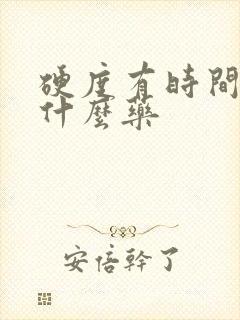 硬度有時間
什麼藥
安倍幹了